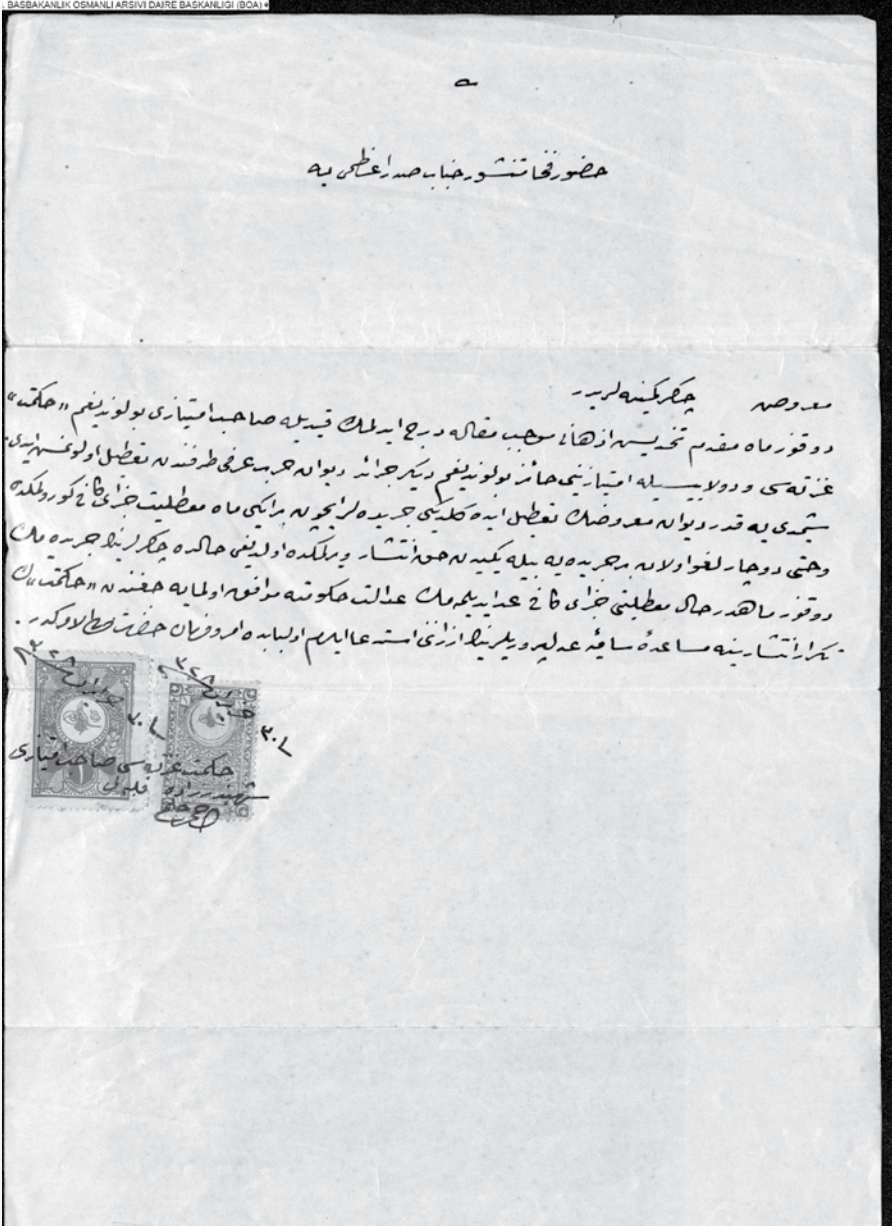 BASBAKANLIK OSMANLI ARSIVI DAIRE BASKANLIGI (BOA)
حضور فخامتنشور جناب صدراعظمی یه
معروض چاکر کمینه لریدر
دوقوز ماه مقدم تخدیش اذهانی موجب مقاله درج ایدلمك قیدیله صاحب امتیازی بولوندیغم «حكمت»
غزته سی و دولاییسیله امتیازینی حائز بولوندیغم دیكر جرائد دیوان حرب عرفی طرفندن تعطیل اولونمش ایدی.
شیمدی یه قدر دیوان معروضك تعطیل ایده كلدیكی جریده لر ایچون بر ایكی ماه معطلیت جزای كافی كورولمكده
وحتی دوچار لغو اولان بر جریده یه بیله یكیدن حق انتشار ویرلمكده اولدیغی حالده چاكرلرینك جریده مك
دوقوز ماهدر حال معطلیتی جزای كافی عد ایدیلمه مك عدالت حكومته موافق اولمایه جغندن «حكمت» ك
تكرار انتشارینه مساعدهٔ سامیهٔ عدلپروریلرینك ارزانی استدعا ایلرم اولبابده امر و فرمان حضرت من له الامركدر.
٣٢٨
٣٢٨
٣٠
٣٠
حكمت غزته سی صاحب امتیازی
شهبندرزاده فلبه لی
احمد حلمی